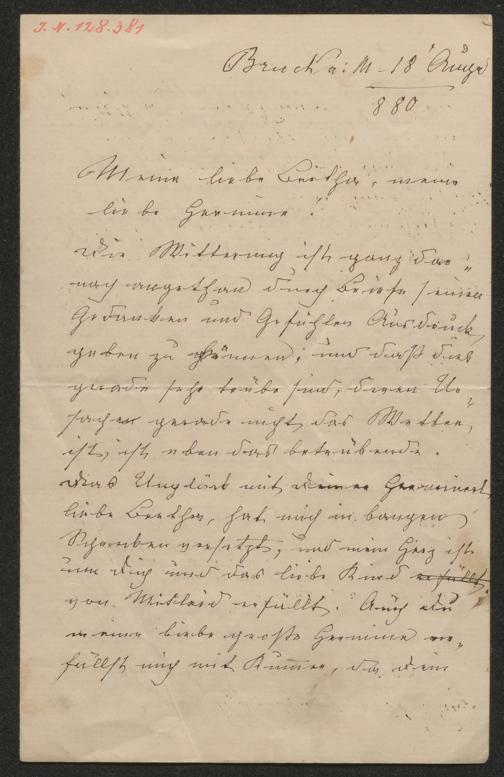 I. N. 128.381
Bruck a: M. 18 Aug
880
Meine liebe Bertha, meine
liebe Hermine!
Die Witterung ist ganz dar„
nach angethan durch Briefe seinen
Gedanken und Gefühlen Ausdruck
geben zu können; und daß dies
gerade sehr trübe sind, deren Ur„
sachen gerade nicht das Wetter
ist, ist eben das betrübende.
Das Unglück mit
liebe Bertha, hat mich in bangen
Schrecken versetzt, und mein Herz ist
um dich und das liebe Kind
von Mitleid erfüllt. Auch du
meine liebe große Hermine er„
füllst mich mit Kummer, da dein